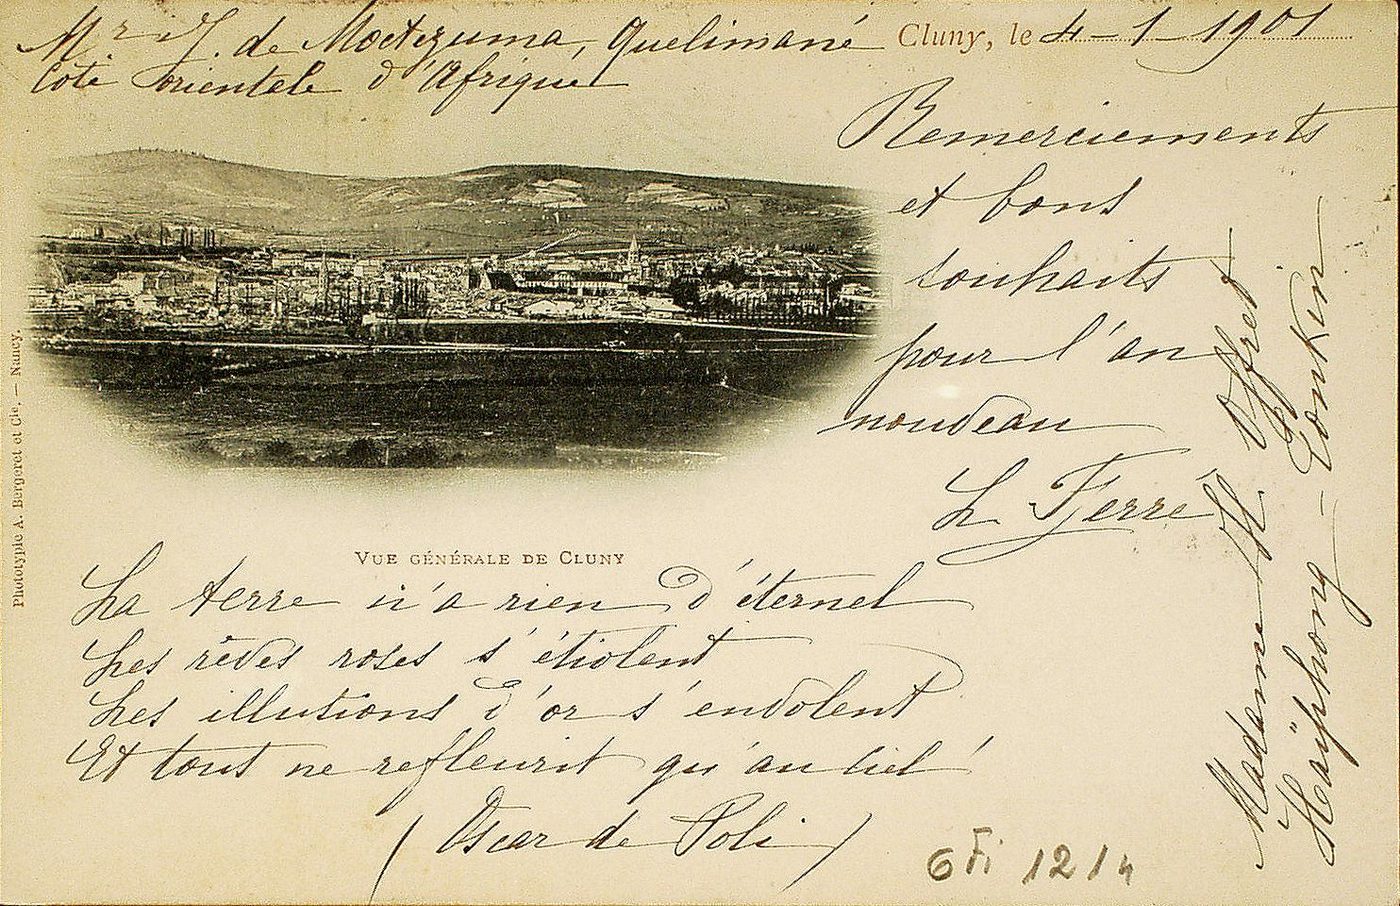 Mr J. de Moctezuma, Quelimané
Côté orientale d'Afrique
Cluny, le 4-1-1901
Remerciements
et bons
souhaits
pour l'an
nouveau
L Ferré
Vue générale de Cluny
La terre n'a rien d'éternel
Les rêves roses s'étiolent
Les illusions d'or s'envolent
Et tout ne refleurit qu'au ciel
(Oscar de Poli)
Madame H. Offret
Haïphong - Tonkin
Phototypie A. Bergeret et Cie. — Nancy.
6 Fi 1214